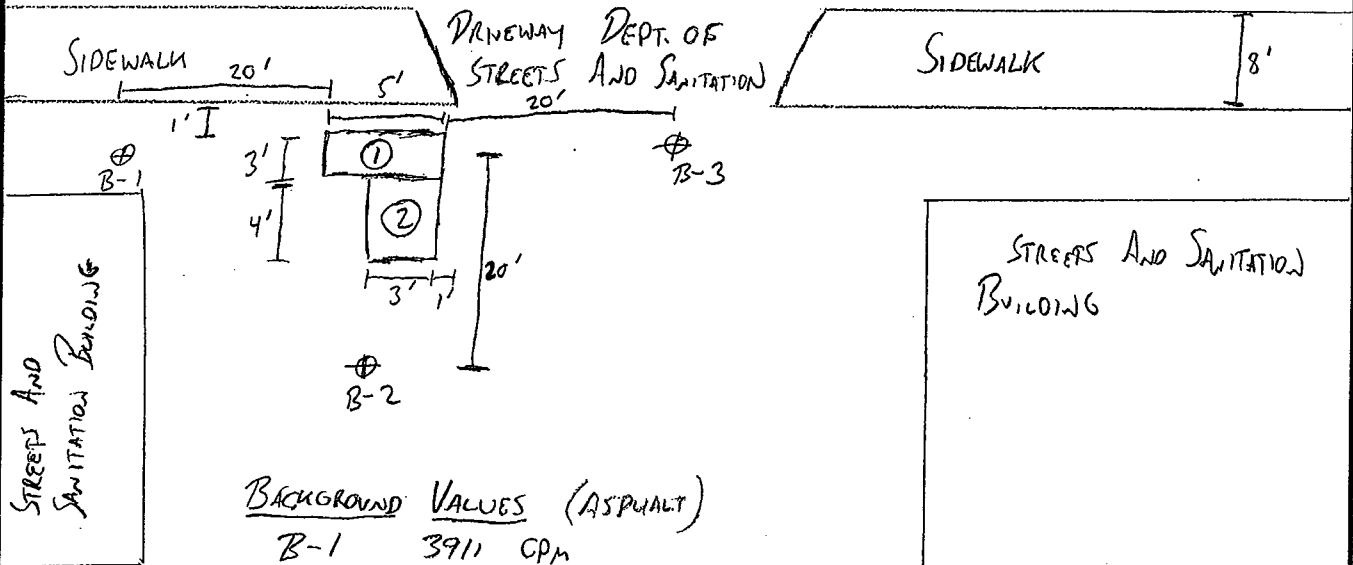 SIDEWALK
DRIVEWAY DEPT. OF
STREETS AND SANITATION
SIDEWALK
8'
20'
5'
20'
1'
B-1
3'
①
B-3
4'
②
3'
1'
20'
B-2
STREETS AND
SANITATION BUILDING
STREETS AND SANITATION
BUILDING
BACKGROUND VALUES (ASPHALT)
B-1 3911 CPM